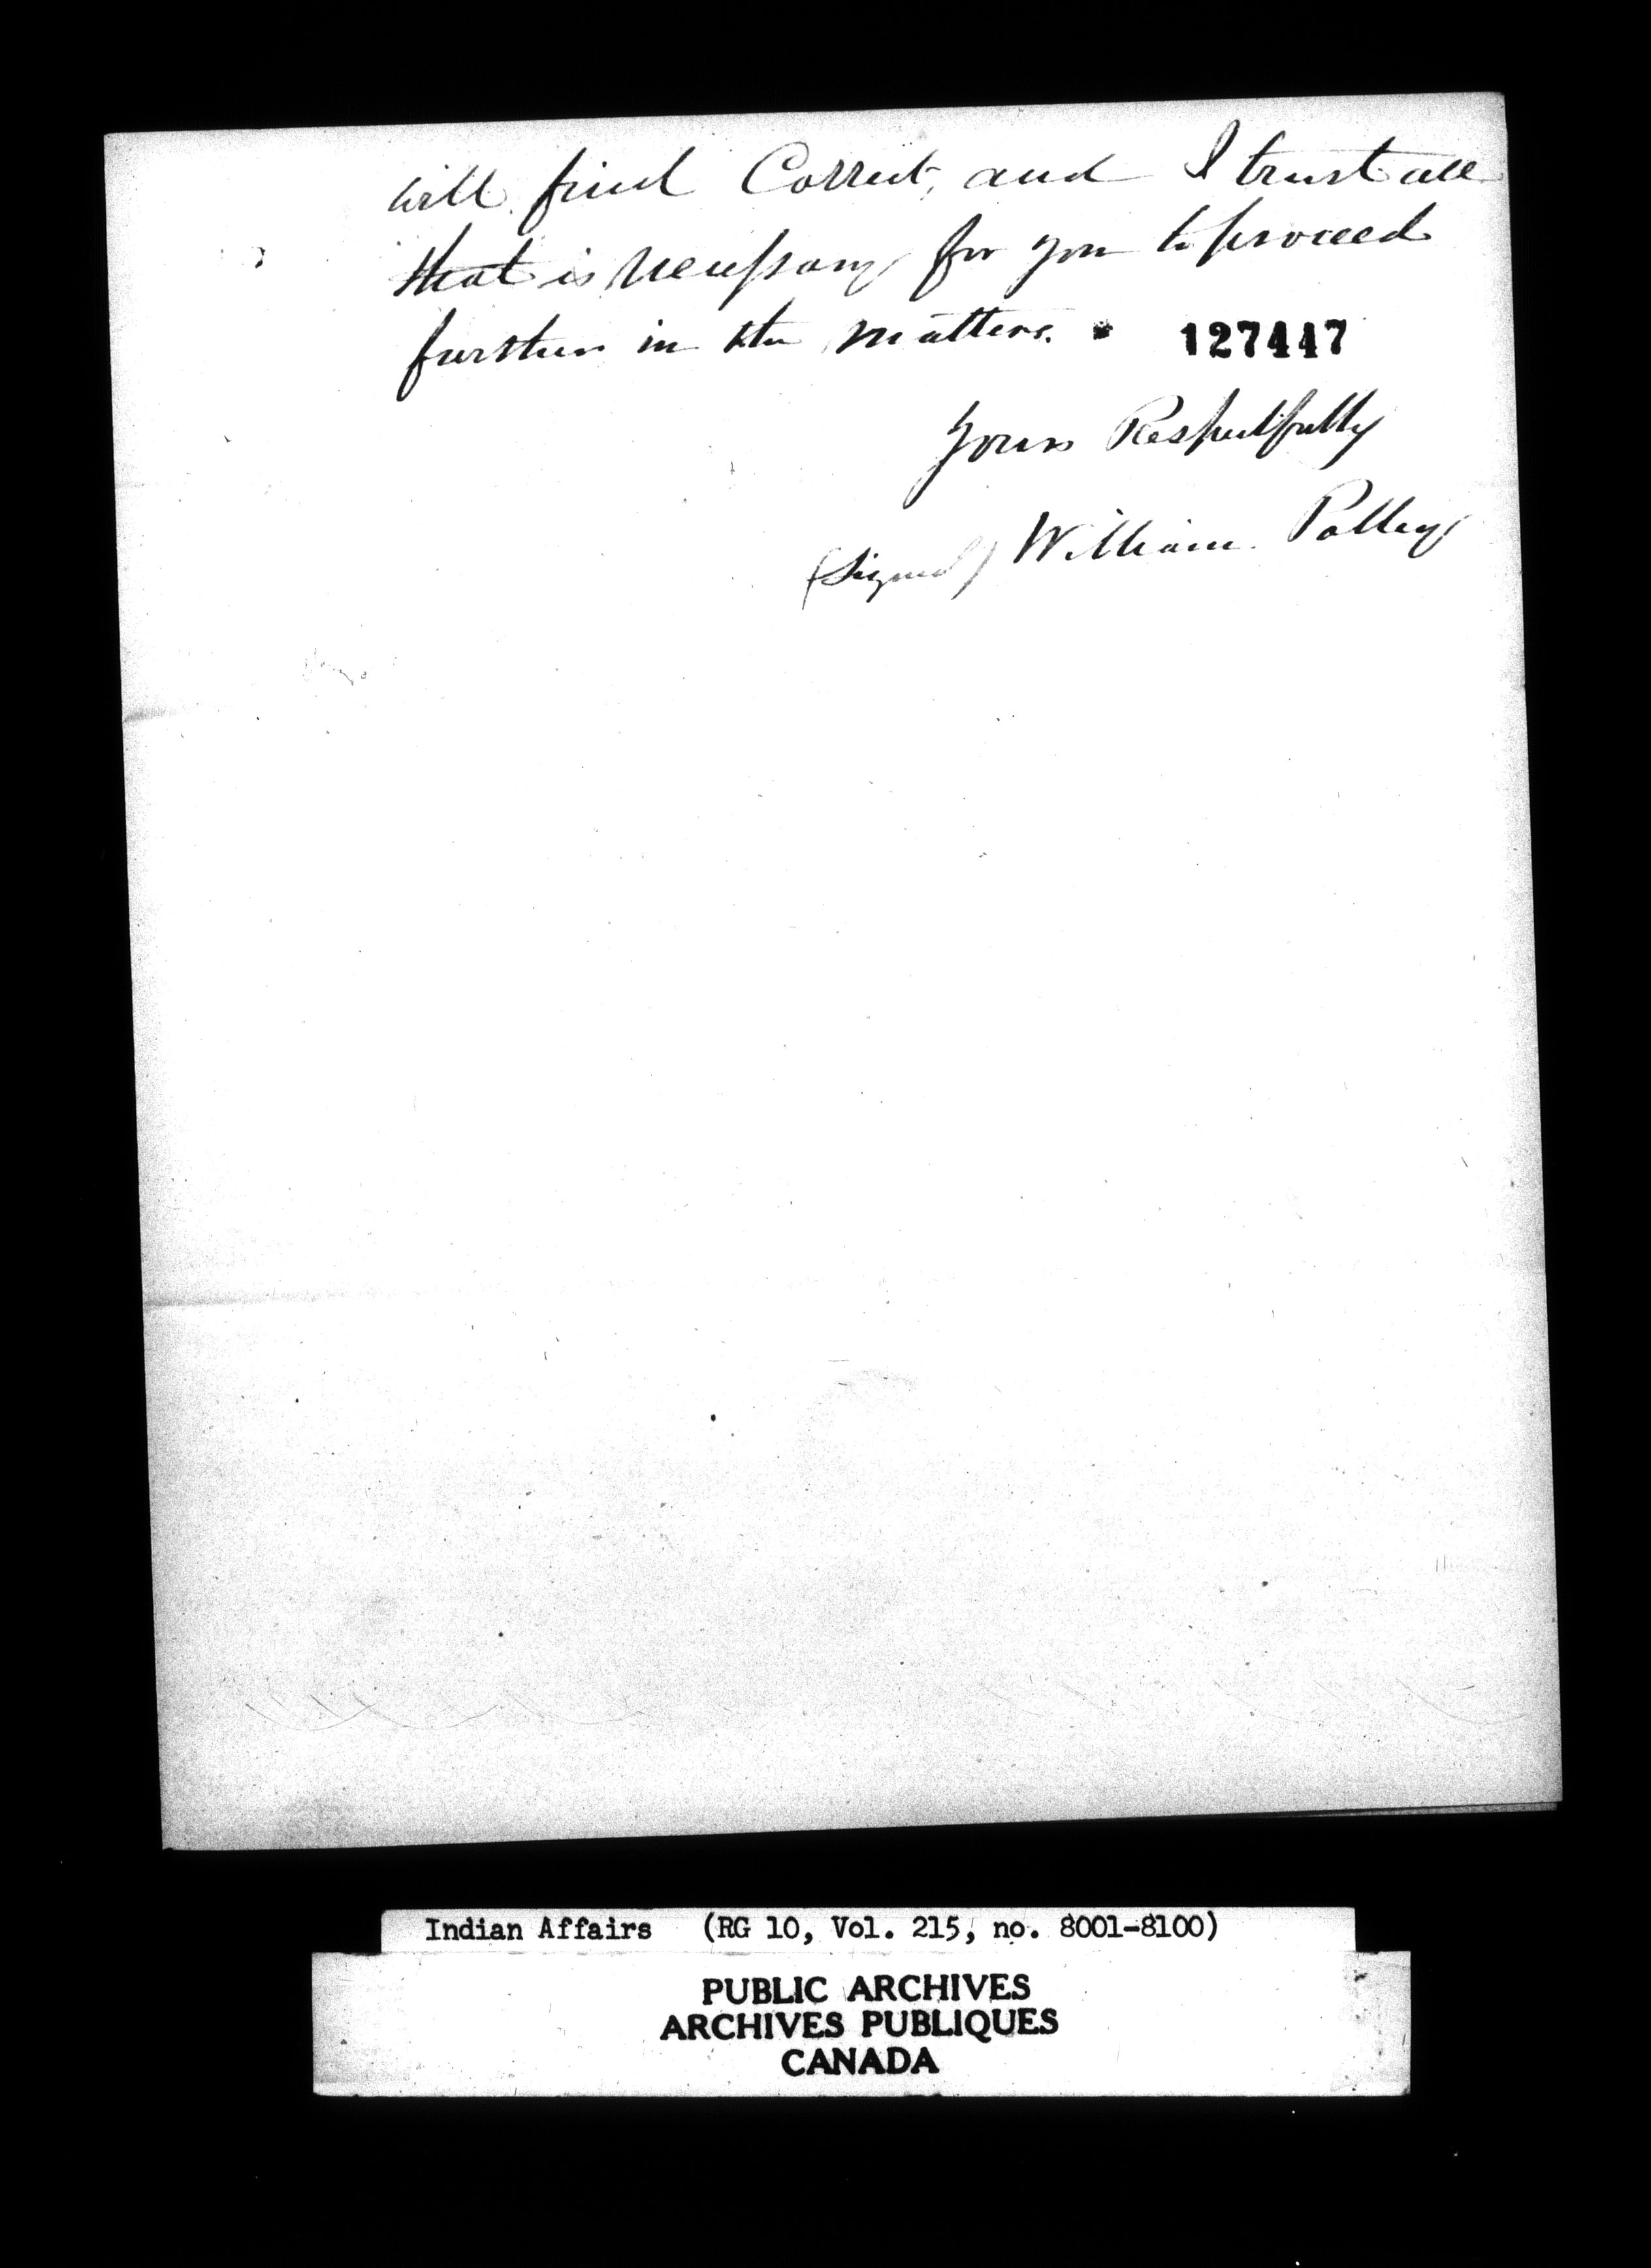 will find Correct, and I trust all
that is necessary for you to proceed
further in the matters. 127447
Yours Respectfully
(Signed) William Polley
Indian Affairs (RG 10, Vol. 215, no. 8001-8100)
PUBLIC ARCHIVES
ARCHIVES PUBLIQUES
CANADA